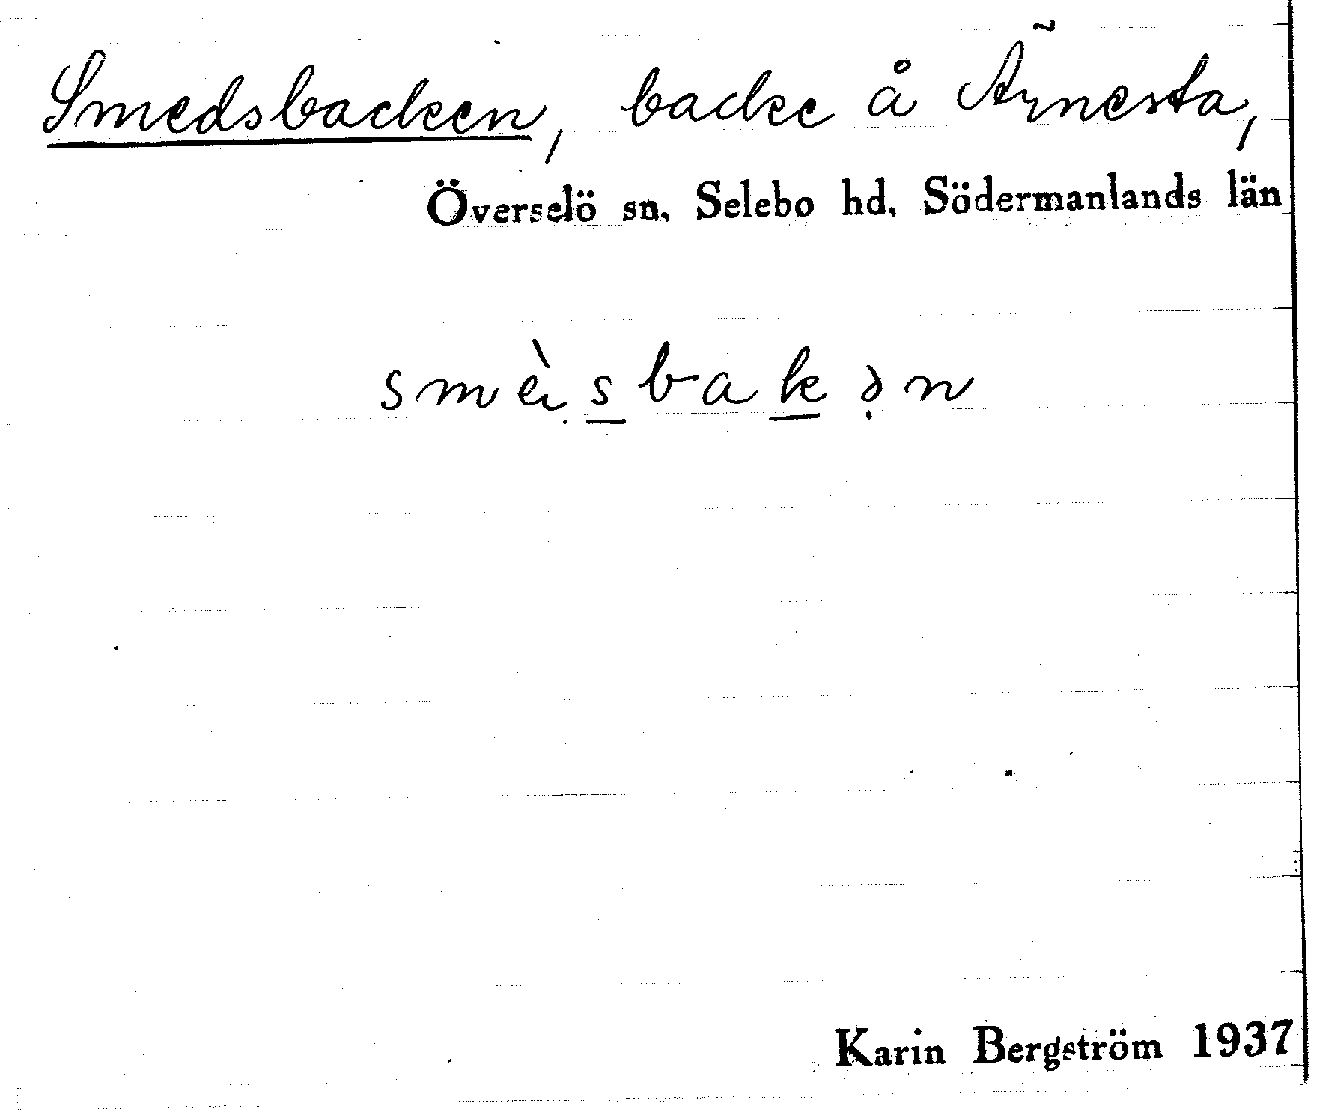 Smedsbacken, backe å Ärnesta,
Överselö sn. Selebo hd. Södermanlands län
smè̩sbakə̩n
Karin Bergström 1937